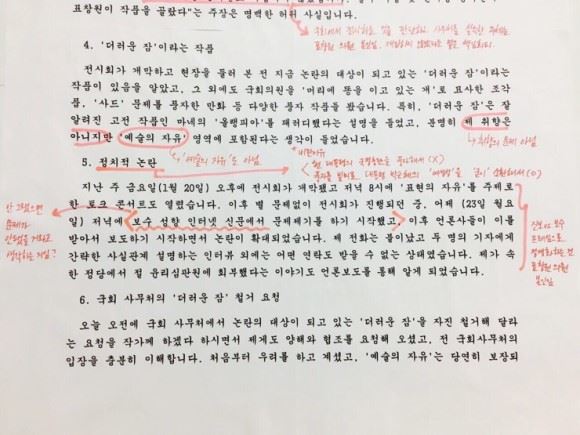 표창원이 작품을 골랐다"는 주장은 명백한 허위 사실입니다.
4. '더러운 잠'이라는 작품
전시회가 개막하고 현장을 둘러 본 전 지금 논란의 대상이 되고 있는 '더러운 잠'이라는
작품이 있음을 알았고, 그 외에도 국회의원을 '머리에 똥을 이고 있는 개'로 묘사한 조각
품, '사드' 문제를 풍자한 만화 등 다양한 풍자 작품들을 봤습니다. 특히, '더러운 잠'은 잘
알려진 고전 작품인 마네의 '올랭피아'를 패러디했다는 설명을 들었고, 분명히 제 취향은
아니지만 '예술의 자유' 영역에 포함된다는 생각이 들었습니다.
취향의 문제 아님
'예술의 자유'도 아님
비판이유
5. 정치적 논란
현 대통령의 국정농단을 풍자해서 (X)
지난 주 금요일(1월 20일) 오후에 전시회가 개막했고 저녁 8시에 '표현의 자유'를 주제로
한 토크 콘서트도 열렸습니다. 이후 별 문제없이 전시회가 진행되던 중, 어제 (23일 월요
일) 저녁에 보수 성향 인터넷 신문에서 문제제기를 하기 시작했고, 이후 언론사들이 이를
받아서 보도하기 시작하면서 논란이 확대되었습니다. 제 전화는 불이났고 두 명의 기자에게
간략한 사실관계 설명하는 인터뷰 외에는 어떤 연락도 받을 수 없는 상태였습니다. 제가 속
한 정당에서 절 윤리심판원에 회부했다는 이야기도 언론보도를 통해 알게 되었습니다.
안 그랬으면
문제가
안됐을 거라고
생각하는 거임?
진보 vs 보수
프레임으로
표창원 의원
본인임
6. 국회 사무처의 '더러운 잠' 철거 요청
오늘 오전에 국회 사무처에서 논란의 대상이 되고 있는 '더러운 잠'을 자진 철거해 달라
는 요청을 작가께 하겠다 하시면서 제게도 양해와 협조를 요청해 오셨고, 전 국회사무처의
입장을 충분히 이해합니다. 처음부터 우려를 하고 계셨고, '예술의 자유'는 당연히 보장되